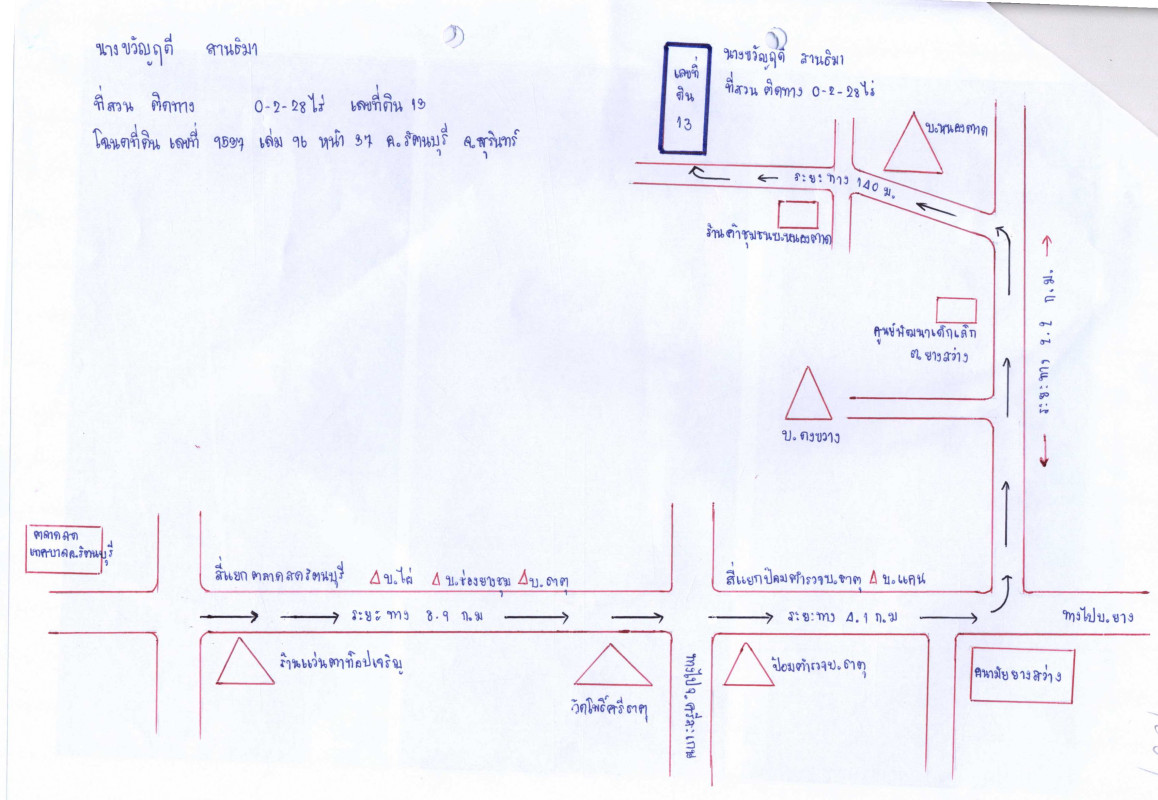 นางขวัญฤดี สานธิมา
ที่สวน ติดทาง 0-2-28 ไร่ เลขที่ดิน 13
โฉนดที่ดิน เลขที่ 9597 เล่ม 96 หน้า 97 อ.รัตนบุรี จ.สุรินทร์
เลขที่
ดิน
13
นางขวัญฤดี สานธิมา
ที่สวน ติดทาง 0-2-28 ไร่
บ.หนองตาด
ระยะทาง 140 ม.
ร้านค้าชุมชนบ.หนองตาด
ระยะทาง 2.2 ก.ม.
ศูนย์พัฒนาเด็กเล็ก
ต.ยางสว่าง
บ.ดงขวาง
ตลาดสด
เทศบาลอ.รัตนบุรี
สี่แยกตลาดสดรัตนบุรี
บ.ไผ่
บ.ธาตุ
สี่แยกป้อมตำรวจบ.ธาตุ
บ.แคน
ระยะทาง 8.9 ก.ม
ระยะทาง 4.1 ก.ม
ทางไปบ.ยาง
ร้านแว่นตาท็อปเจริญ
วัดโพธิ์ศรีธาตุ
ทางไปจ.ศรีสะเกษ
ป้อมตำรวจบ.ธาตุ
อนามัยยางสว่าง